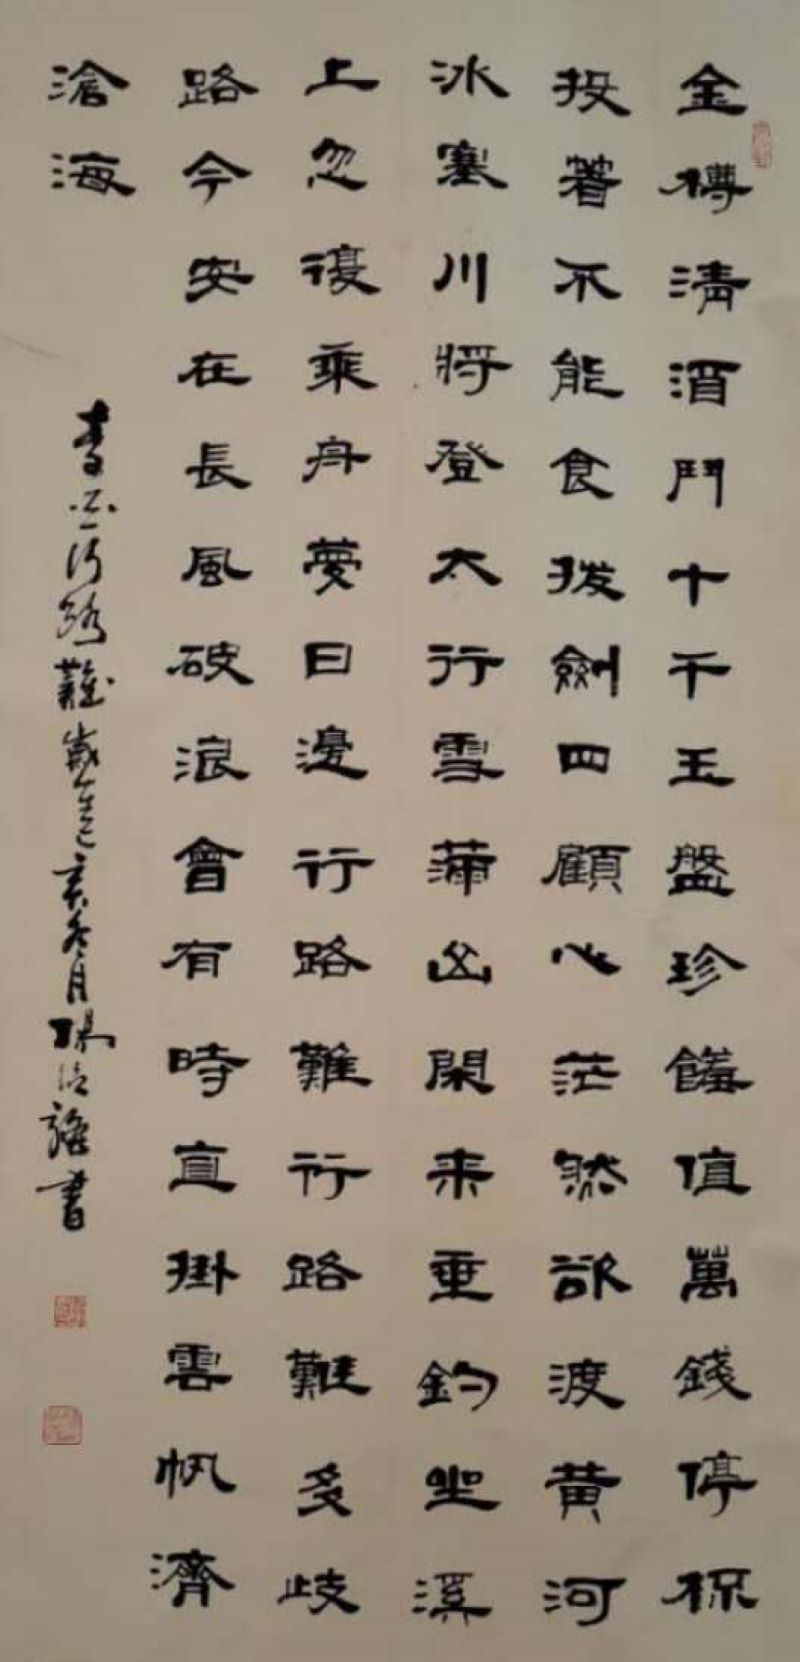 金樽清酒鬥十千玉盤珍饈值萬錢停杯
投箸不能食拔劍四顧心茫然欲渡黃河
冰塞川將登太行雪滿山閑来垂釣坐溪
上忽復乘舟夢日邊行路難行路難多歧
路今安在長風破浪會有時直掛雲帆濟
滄海
李白行路難歲在己亥冬月書